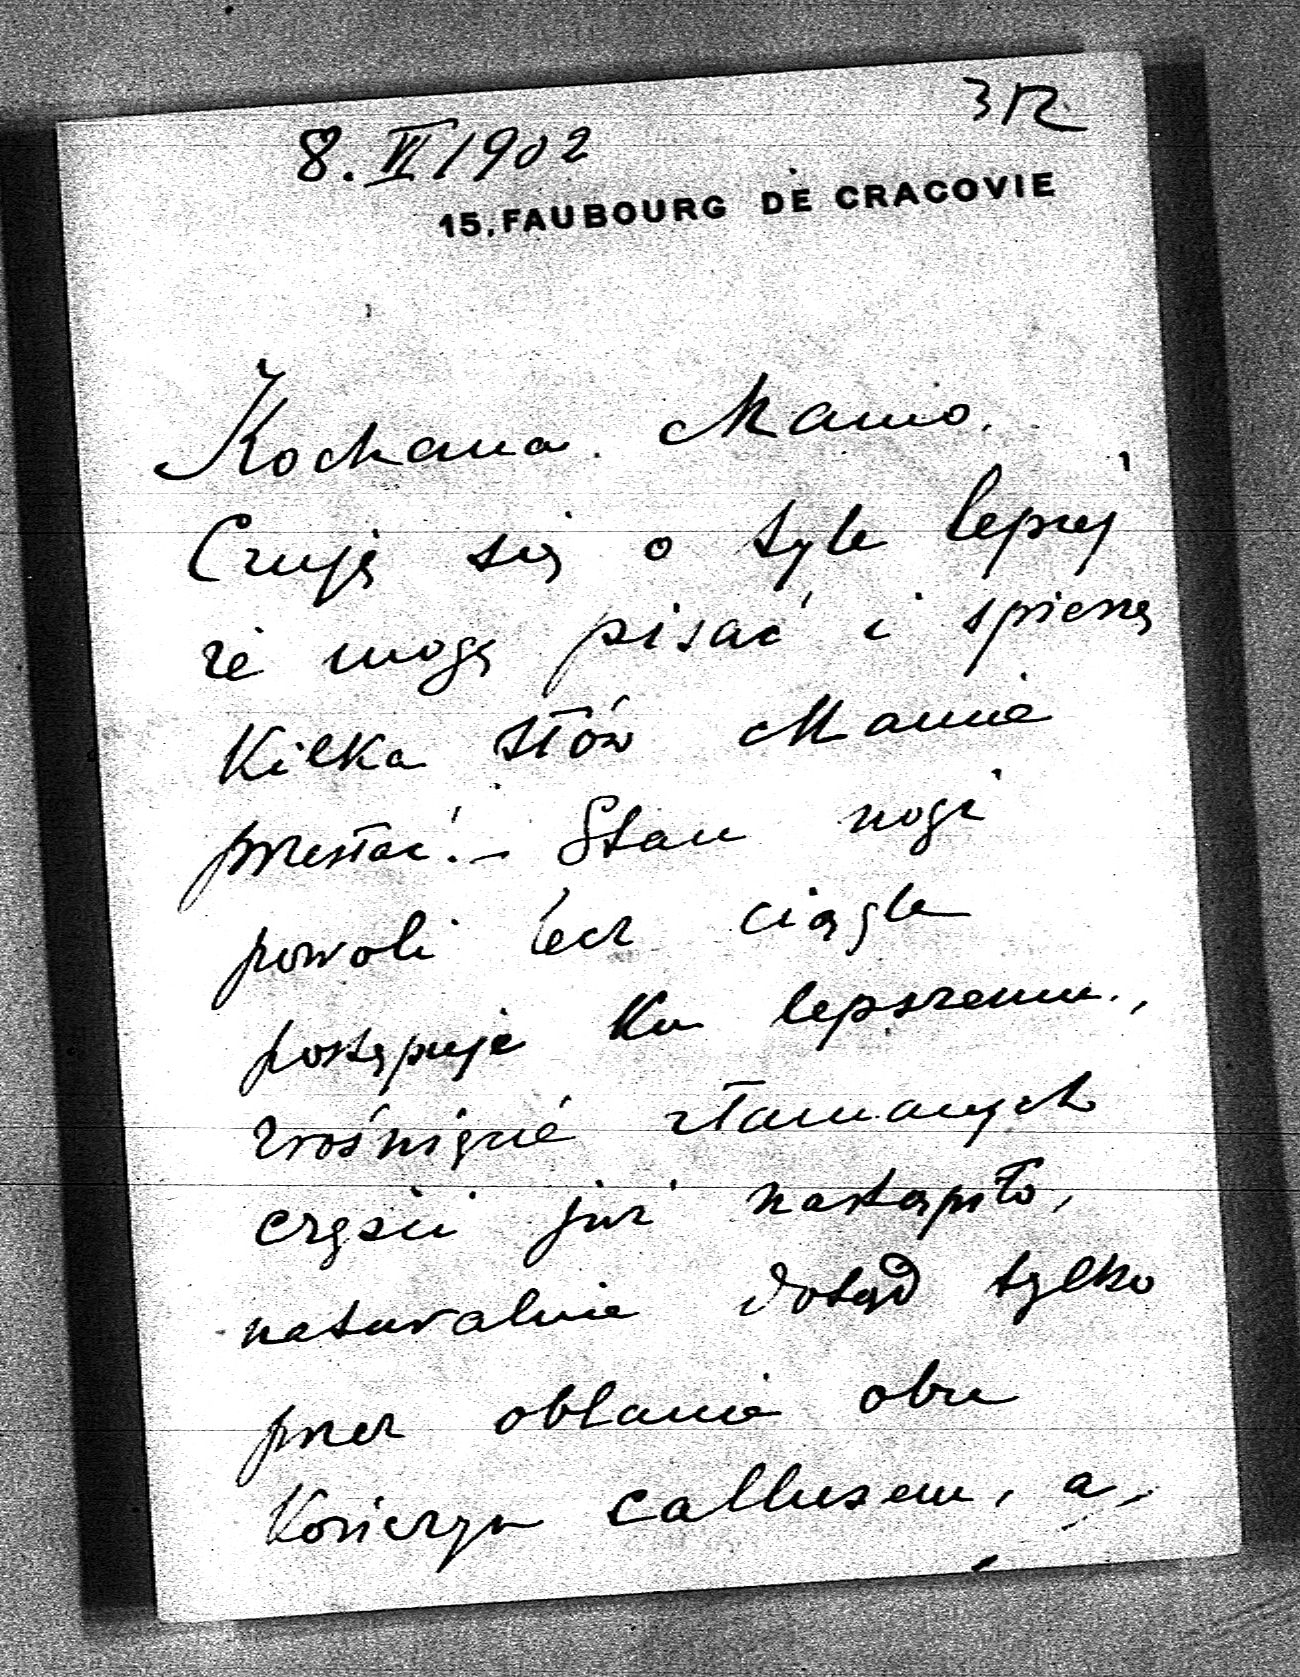 312
8. VI 1902
15, FAUBOURG DE CRACOVIE
Kochana Mamo.
Czuję się o tyle lepiej
że mogę pisać i spieszę
kilka słów Mamie
przesłać. – Stan nogi
powoli lecz ciągle
postępuje ku lepszemu,
zrośnięcie złamanych
części już nastąpiło,
naturalnie dotąd tylko
przez oblanie obu
kończyn callusem, a